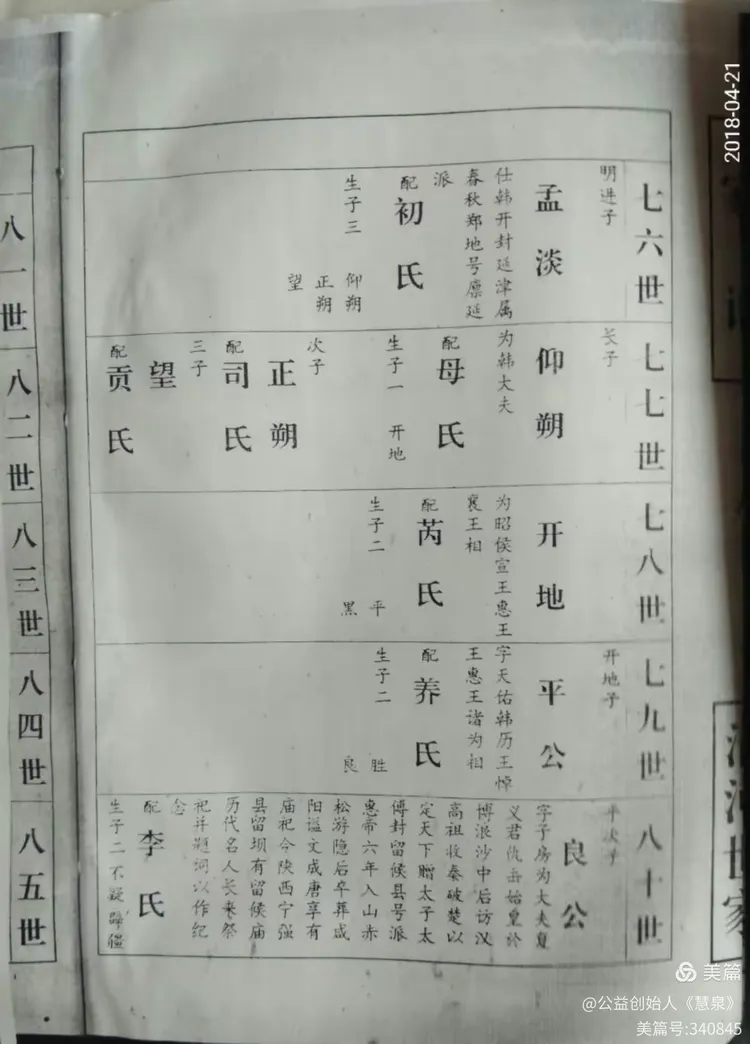 七六世
明进子
孟淡
仕韩开封延津属
春秋郑地号廪延
派
配
初氏
生子三
仰朔
正朔
望
七七世
长子
仰朔
为韩大夫
配
母氏
生子一 开地
次子
正朔
配
司氏
三子
望
配
贡氏
七八世
开地
为昭侯宣王惠王
襄王相
配
芮氏
生子二
平
黑
七九世
开地子
平公
字天佑韩历王悼
王惠王诸为相
配
养氏
生子二
胜
良
八十世
平次子
良公
字子房为大夫复
义君仇击始皇于
博浪沙中后访汉
高祖收秦破楚以
定天下赠太子太
傅封留候县号派
惠帝六年入山赤
松游隐后卒葬咸
阳谥文成唐享有
庙祀今陕西宁强
县留坝有留候庙
历代名人长来祭
祀并题词以作纪
念
配
李氏
生子二不疑辟疆
八一世
八二世
八三世
八四世
八五世
清河世家
2018-04-21
美篇
@公益创始人《慧泉》
美篇号:340845